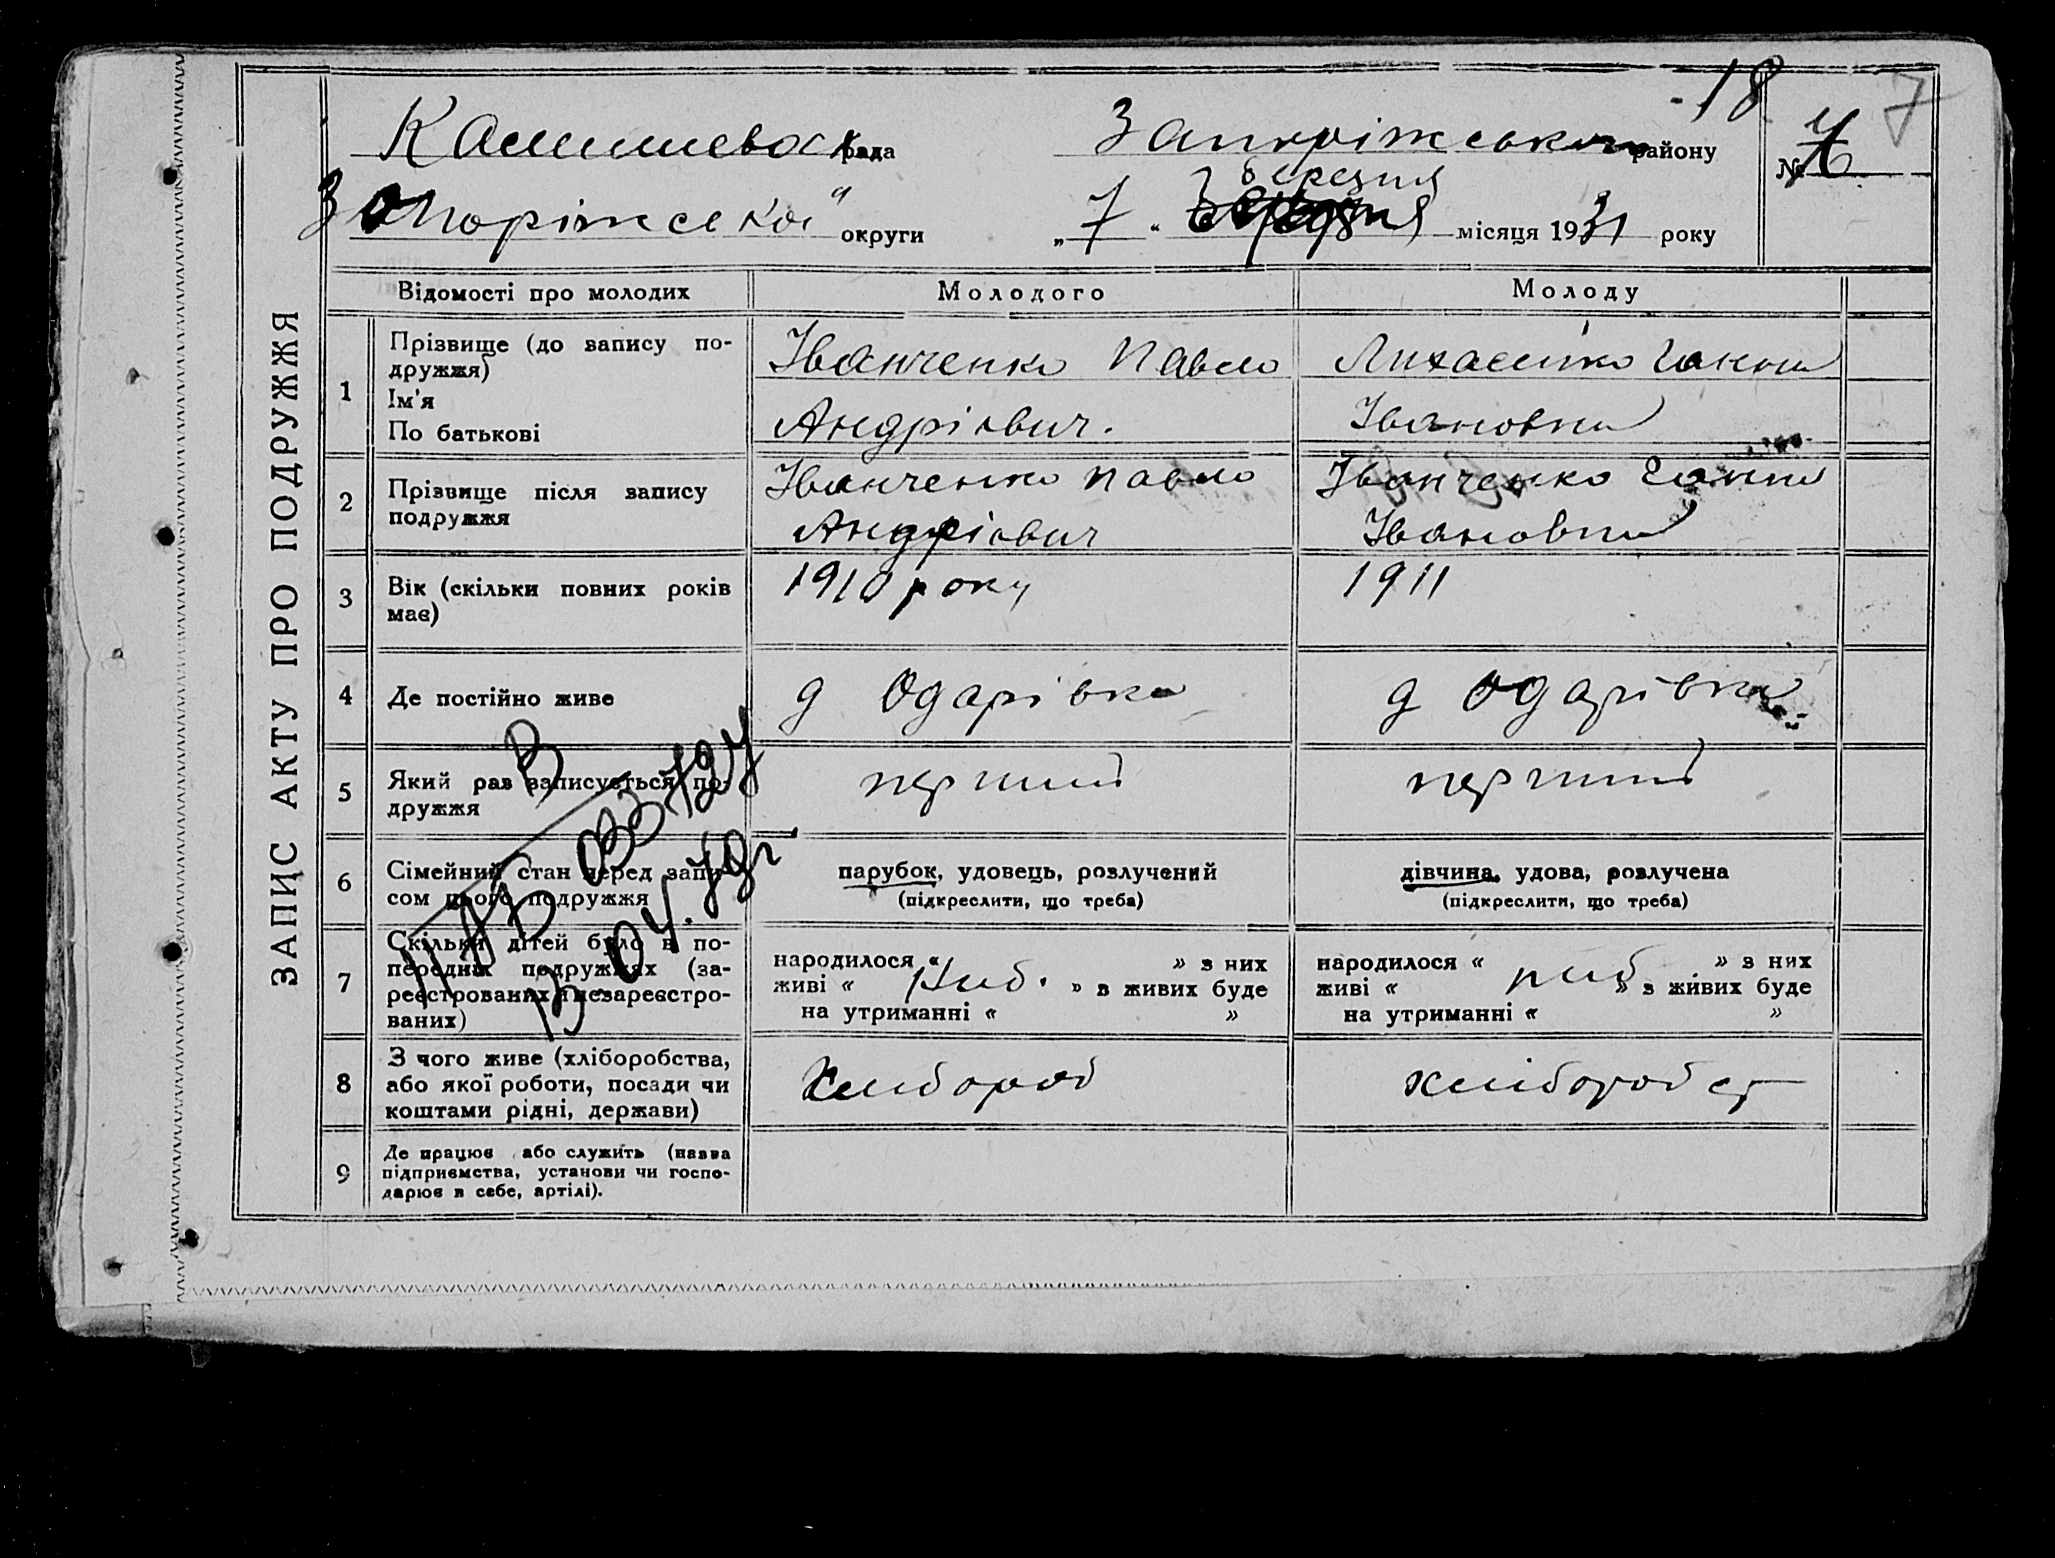 18
7
Камишеваска рада Запоріжського району
№ 7
Запоріжської округи „7" березня місяця 1931 року
березня
ЗАПИС АКТУ ПРО ПОДРУЖЖЯ
Відомості про молодих Молодого Молоду
1 Прізвище (до запису по-
дружжя)
Ім'я
По батькові
Іванченко Павло
Андрієвич.
Ганна
Івановна
2 Прізвище після запису
подружжя
Іванченко Павло
Андрієвич
Іванченко Ганна
Івановна
3 Вік (скільки повних років
має)
1910 року
1911
4 Де постійно живе
д Одарівка
д Одарівка
5 Який раз записується по-
дружжя
перший
перший
6 Сімейний стан перед запи-
сом цього подружжя
парубок, удовець, розлучений
(підкреслити, що треба)
дівчина, удова, розлучена
(підкреслити, що треба)
7 Скільки дітей було в по-
передніх подружжях (за-
реєстрованих і незареєстро-
ваних)
народилося « » з них
живі « » з живих буде
на утриманні « »
народилося « » з них
живі « » з живих буде
на утриманні « »
8 З чого живе (хліборобства,
або якої роботи, посади чи
коштами рідні, держави)
Хлибороб
хлиборобст
9 Де працює або служить (назва
підприємства, установи чи госпо-
дарює в себе, артілі).